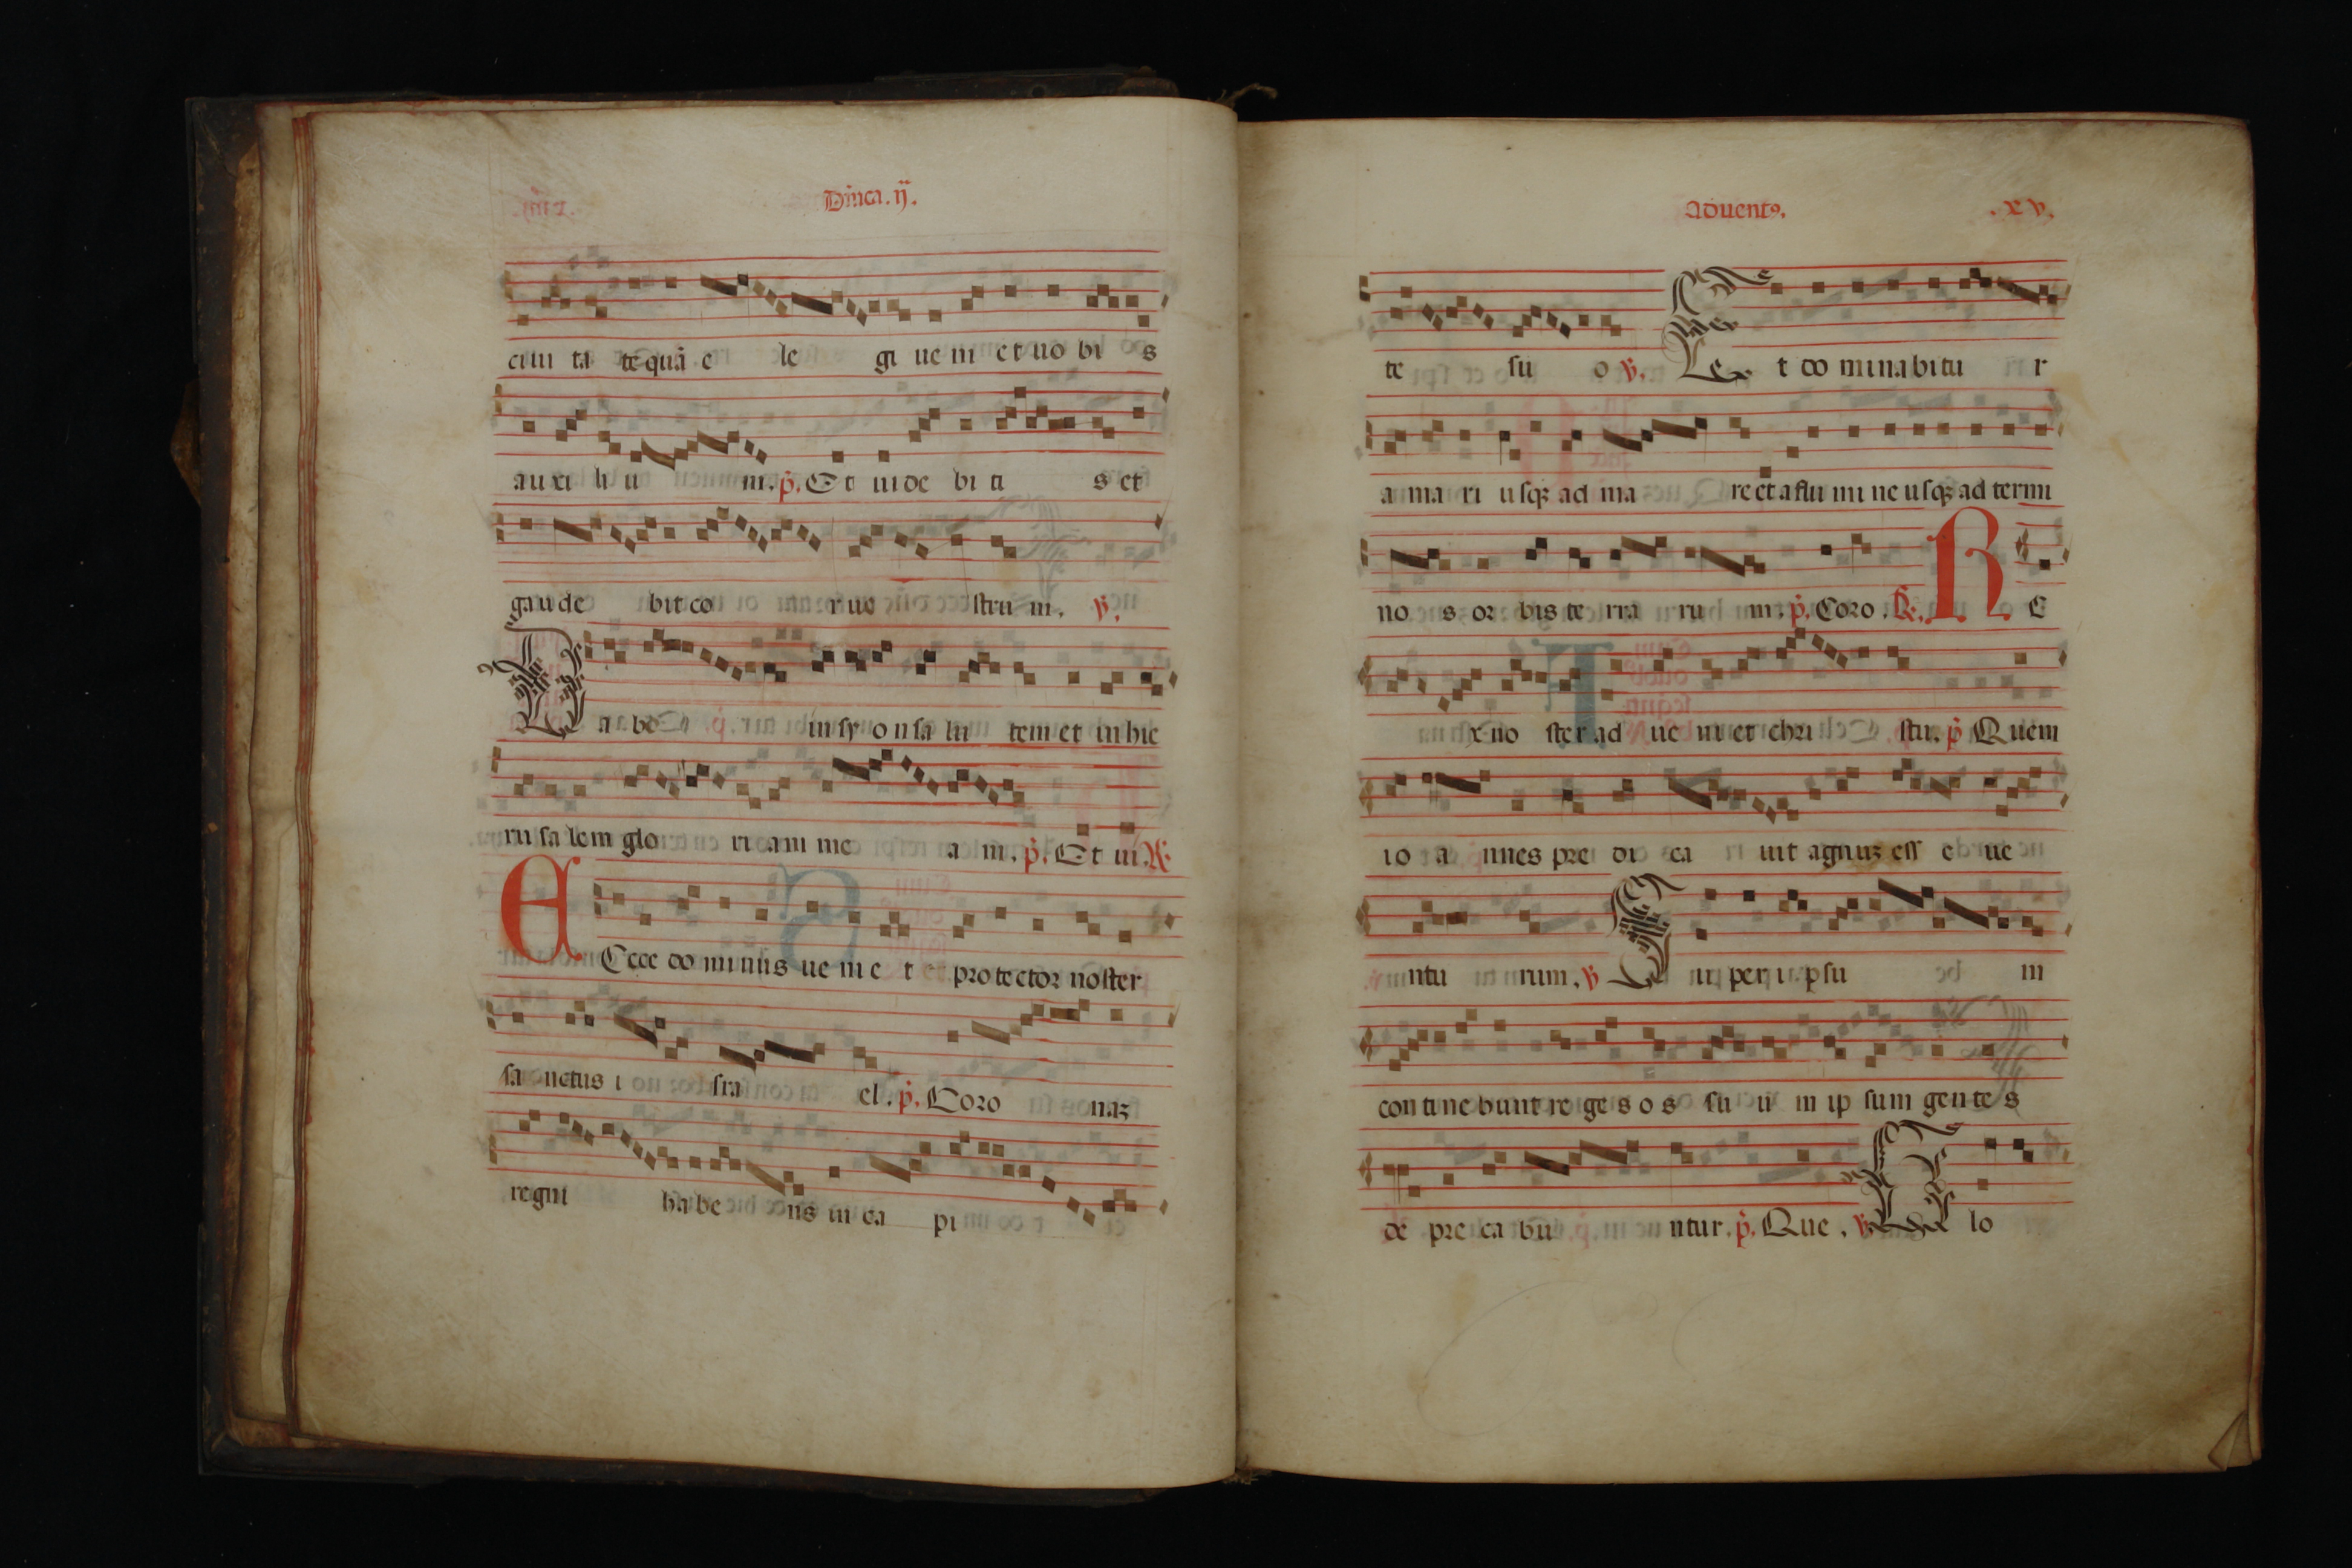 Dnica .ij.
ciui ta te quā e le gi ue ni et uo bi s
au xi li u m. p. Et uide bi ti s et
gaude bit co r ue strum. ꝟ.
D a bo in sy on sa lu tem et in hie
ru sa lem glo ri am me a m. p. Et ui. ℟.
E Ccce do mi nus ue ni e t protector noster
sa nctus i sra el. p. Coro naz
regni habe ns in ca pi
Aduentꝰ. .xv.
te su o ꝟ. E t do minabitu r
a ma ri usqz ad ma re et a flu mi ne usqz ad termi
no s or bis te rra ru m. p. Coro. ℟. R E
x no ster ad ue ni et chri stu. p. Quem
io a nnes pre di ca uit agnuz ess e ue
ntu rum. ꝟ S u per i psu m
conti nebunt re ges o s su u m ip sum gente s
de pre ca bu ntur. p. Que. ꝟ. lo